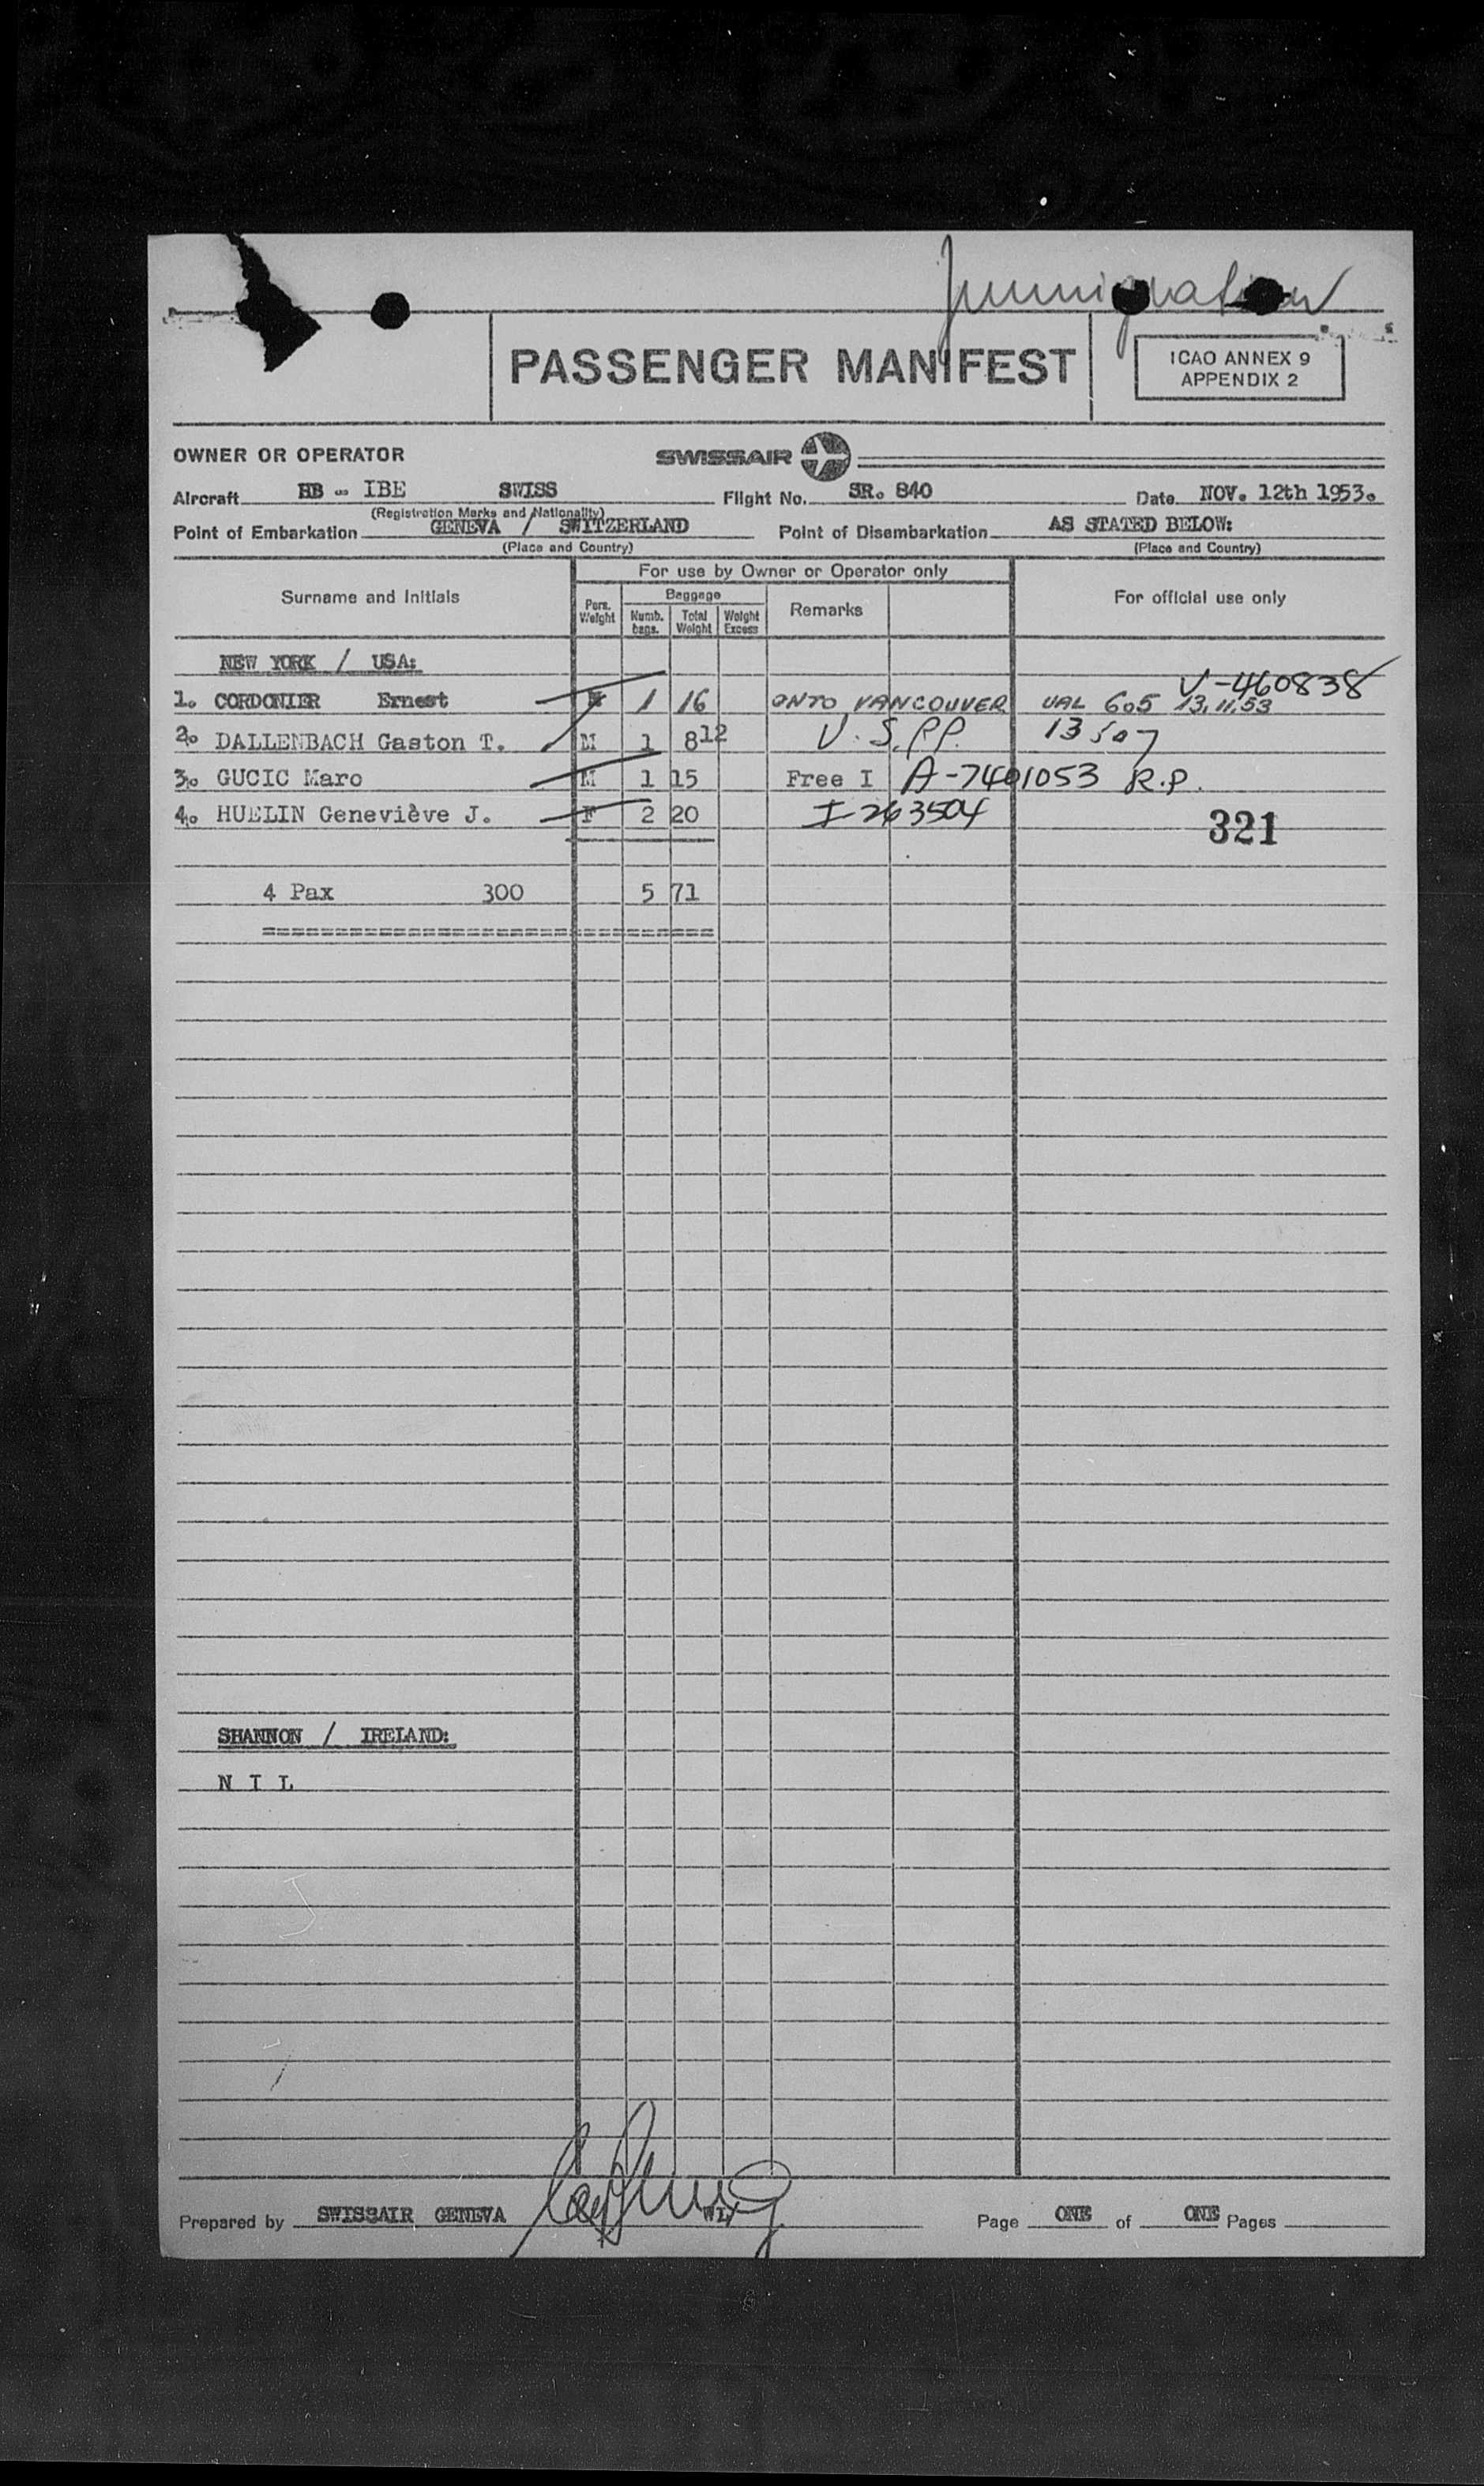 Immigration
PASSENGER MANIFEST
ICAO ANNEX 9
APPENDIX 2
OWNER OR OPERATOR SWISSAIR
Aircraft HB - IBE SWISS Flight No. SR. 840 Date NOV. 12th 1953.
(Registration Marks and Nationality)
Point of Embarkation GENEVA / SWITZERLAND Point of Disembarkation AS STATED BELOW:
(Place and Country) (Place and Country)
For use by Owner or Operator only
Surname and Initials Pers. Weight Baggage Numb. bags. Total Weight Weight Excess Remarks For official use only
NEW YORK / USA:
V-460838
1. CORDONIER Ernest M 1 16 ONTO VANCOUVER UAL 605 13.11.53
2. DALLENBACH Gaston T. M 1 812 U.S.PP. 13507
3. GUCIC Maro M 1 15 Free I A-7401053 R.P.
4. HUELIN Geneviève J. F 2 20 I-263504
321
4 Pax 300 5 71
===============================
SHANNON / IRELAND:
N I L
Prepared by SWISSAIR GENEVA WL/ Page ONE of ONE Pages